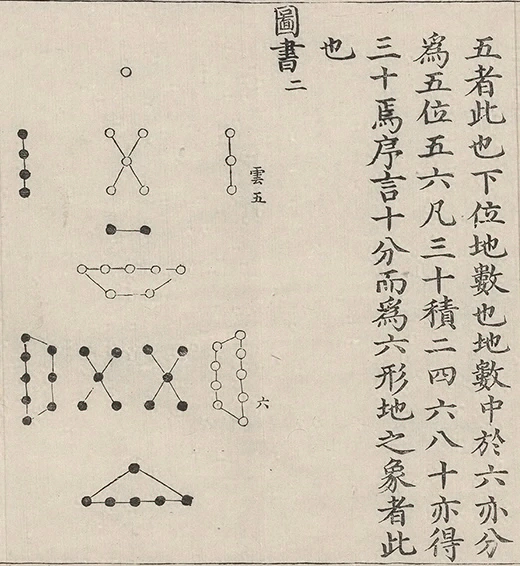 五者此也下位地數也地數中於六亦分
爲五位五六凡三十積二四六八十亦得
三十焉序言十分而爲六形地之象者此
也
圖書二
雲五
六